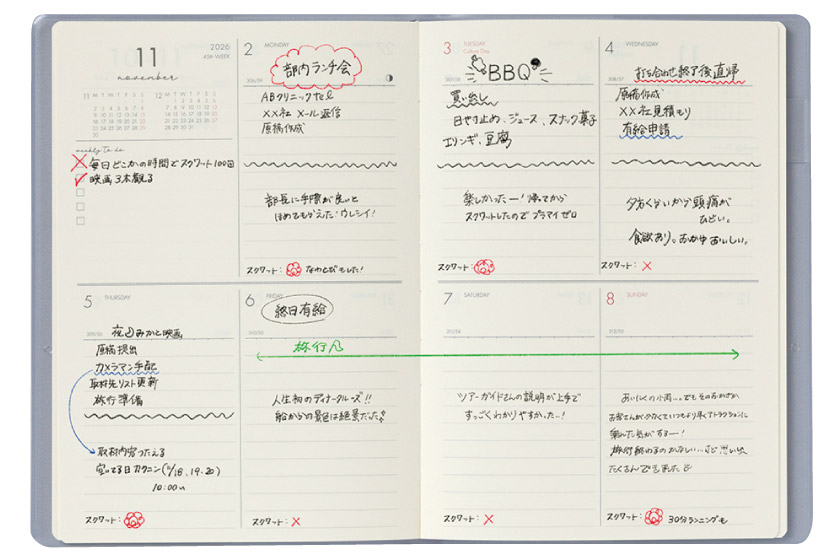 11
november
2026
45th WEEK
11 M T W T F S S
1
2 3 4 5 6 7 8
9 10 11 12 13 14 15
16 17 18 19 20 21 22
23 24 25 26 27 28 29
30
12 M T W T F S S
1 2 3 4 5 6
7 8 9 10 11 12 13
14 15 16 17 18 19 20
21 22 23 24 25 26 27
28 29 30 31
weekly to do
毎日どこかの時間でスクワット100回
映画3本観る
2 MONDAY
306/59
部内ランチ会
ABクリニックtel
××社 メール返信
原稿作成
部長に手際が良いと
ほめてもらえた!ウレシイ!
スクワット: なわとびもした!
3 TUESDAY
Culture Day
307/58
BBQ
買い出し
日やけ止め、ジュース、スナック菓子
エリンギ、豆腐
楽しかったー!帰ってから
スクワットしたのでプラマイゼロ
スクワット:
4 WEDNESDAY
308/57
打ち合わせ終了後直帰
原稿作成
××社見積もり
有給申請
夕方くらいから頭痛が
ひどい。
食欲あり。おかゆおいしい。
スクワット: ×
5 THURSDAY
309/56
夜 みかと映画
原稿提出
カメラマン手配
取材先リスト更新
旅行準備
取材内容つたえる
空いてる日カクニン(11/18.19.20)
10:00〜
スクワット:
6 FRIDAY
310/55
終日有給
旅行
人生初のディナークルーズ!!
船からの景色は絶景だった
スクワット: ×
7 SATURDAY
311/54
ツアーガイドさんの説明が上手で
すっごくわかりやすかった…!
スクワット: ×
8 SUNDAY
312/53
あいにくの小雨…。でもそのおかげか
お客さんが少なくていつもより早くアトラクションに
楽しんだ気がするー!
旅行終わるのかなしい…けど思い出
たくさんできました
スクワット: 30分ランニングも